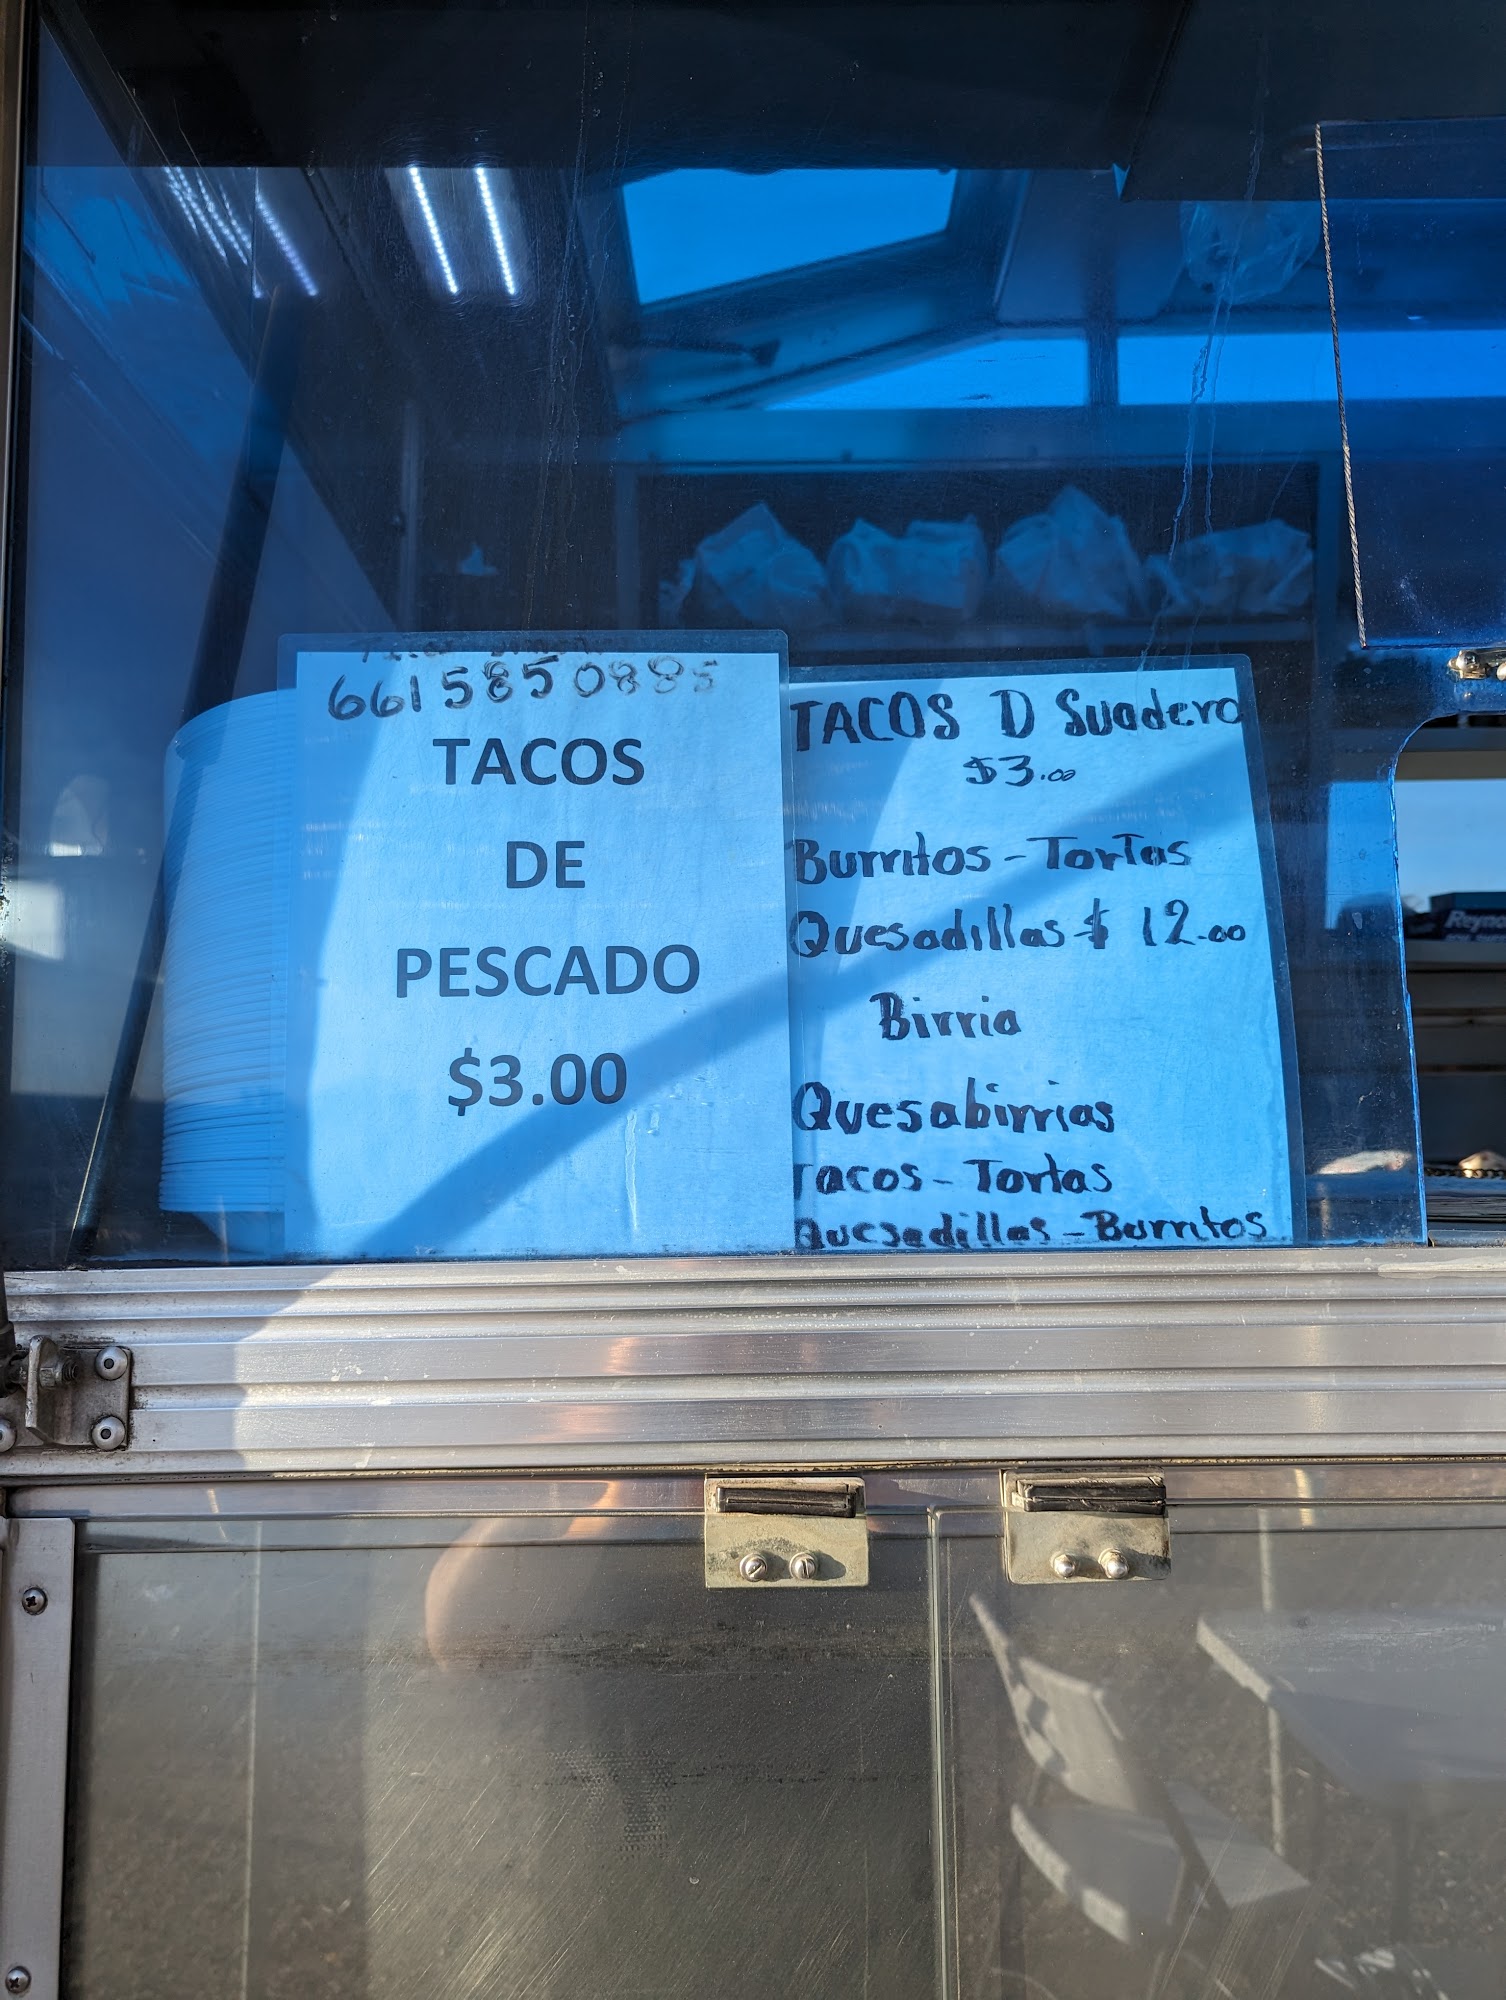 661 5850885
TACOS
DE
PESCADO
$3.00
TACOS D Suadero
$3.00
Burritos - Tortas
Quesadillas $ 12.00
Birria
Quesabirrias
Tacos - Tortas
Quesadillas - Burritos